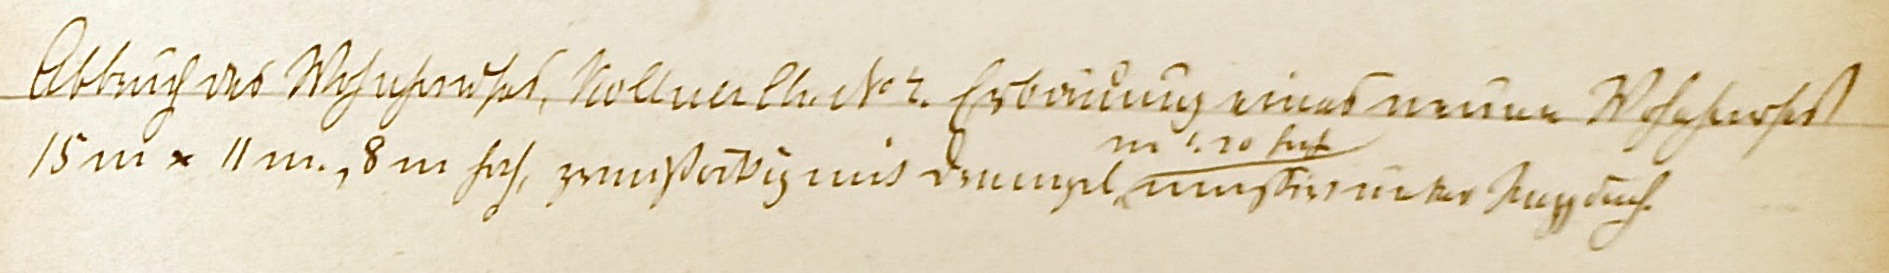 Abbruch des Wohnhauses, Kollnerstr. No 2. Erbauung eines neuen Wohnhauses
m 1.20 hoch
15 m x 11 m., 8 m hoch, zweistöckig mit Drempel, massiv unter Pappdach.